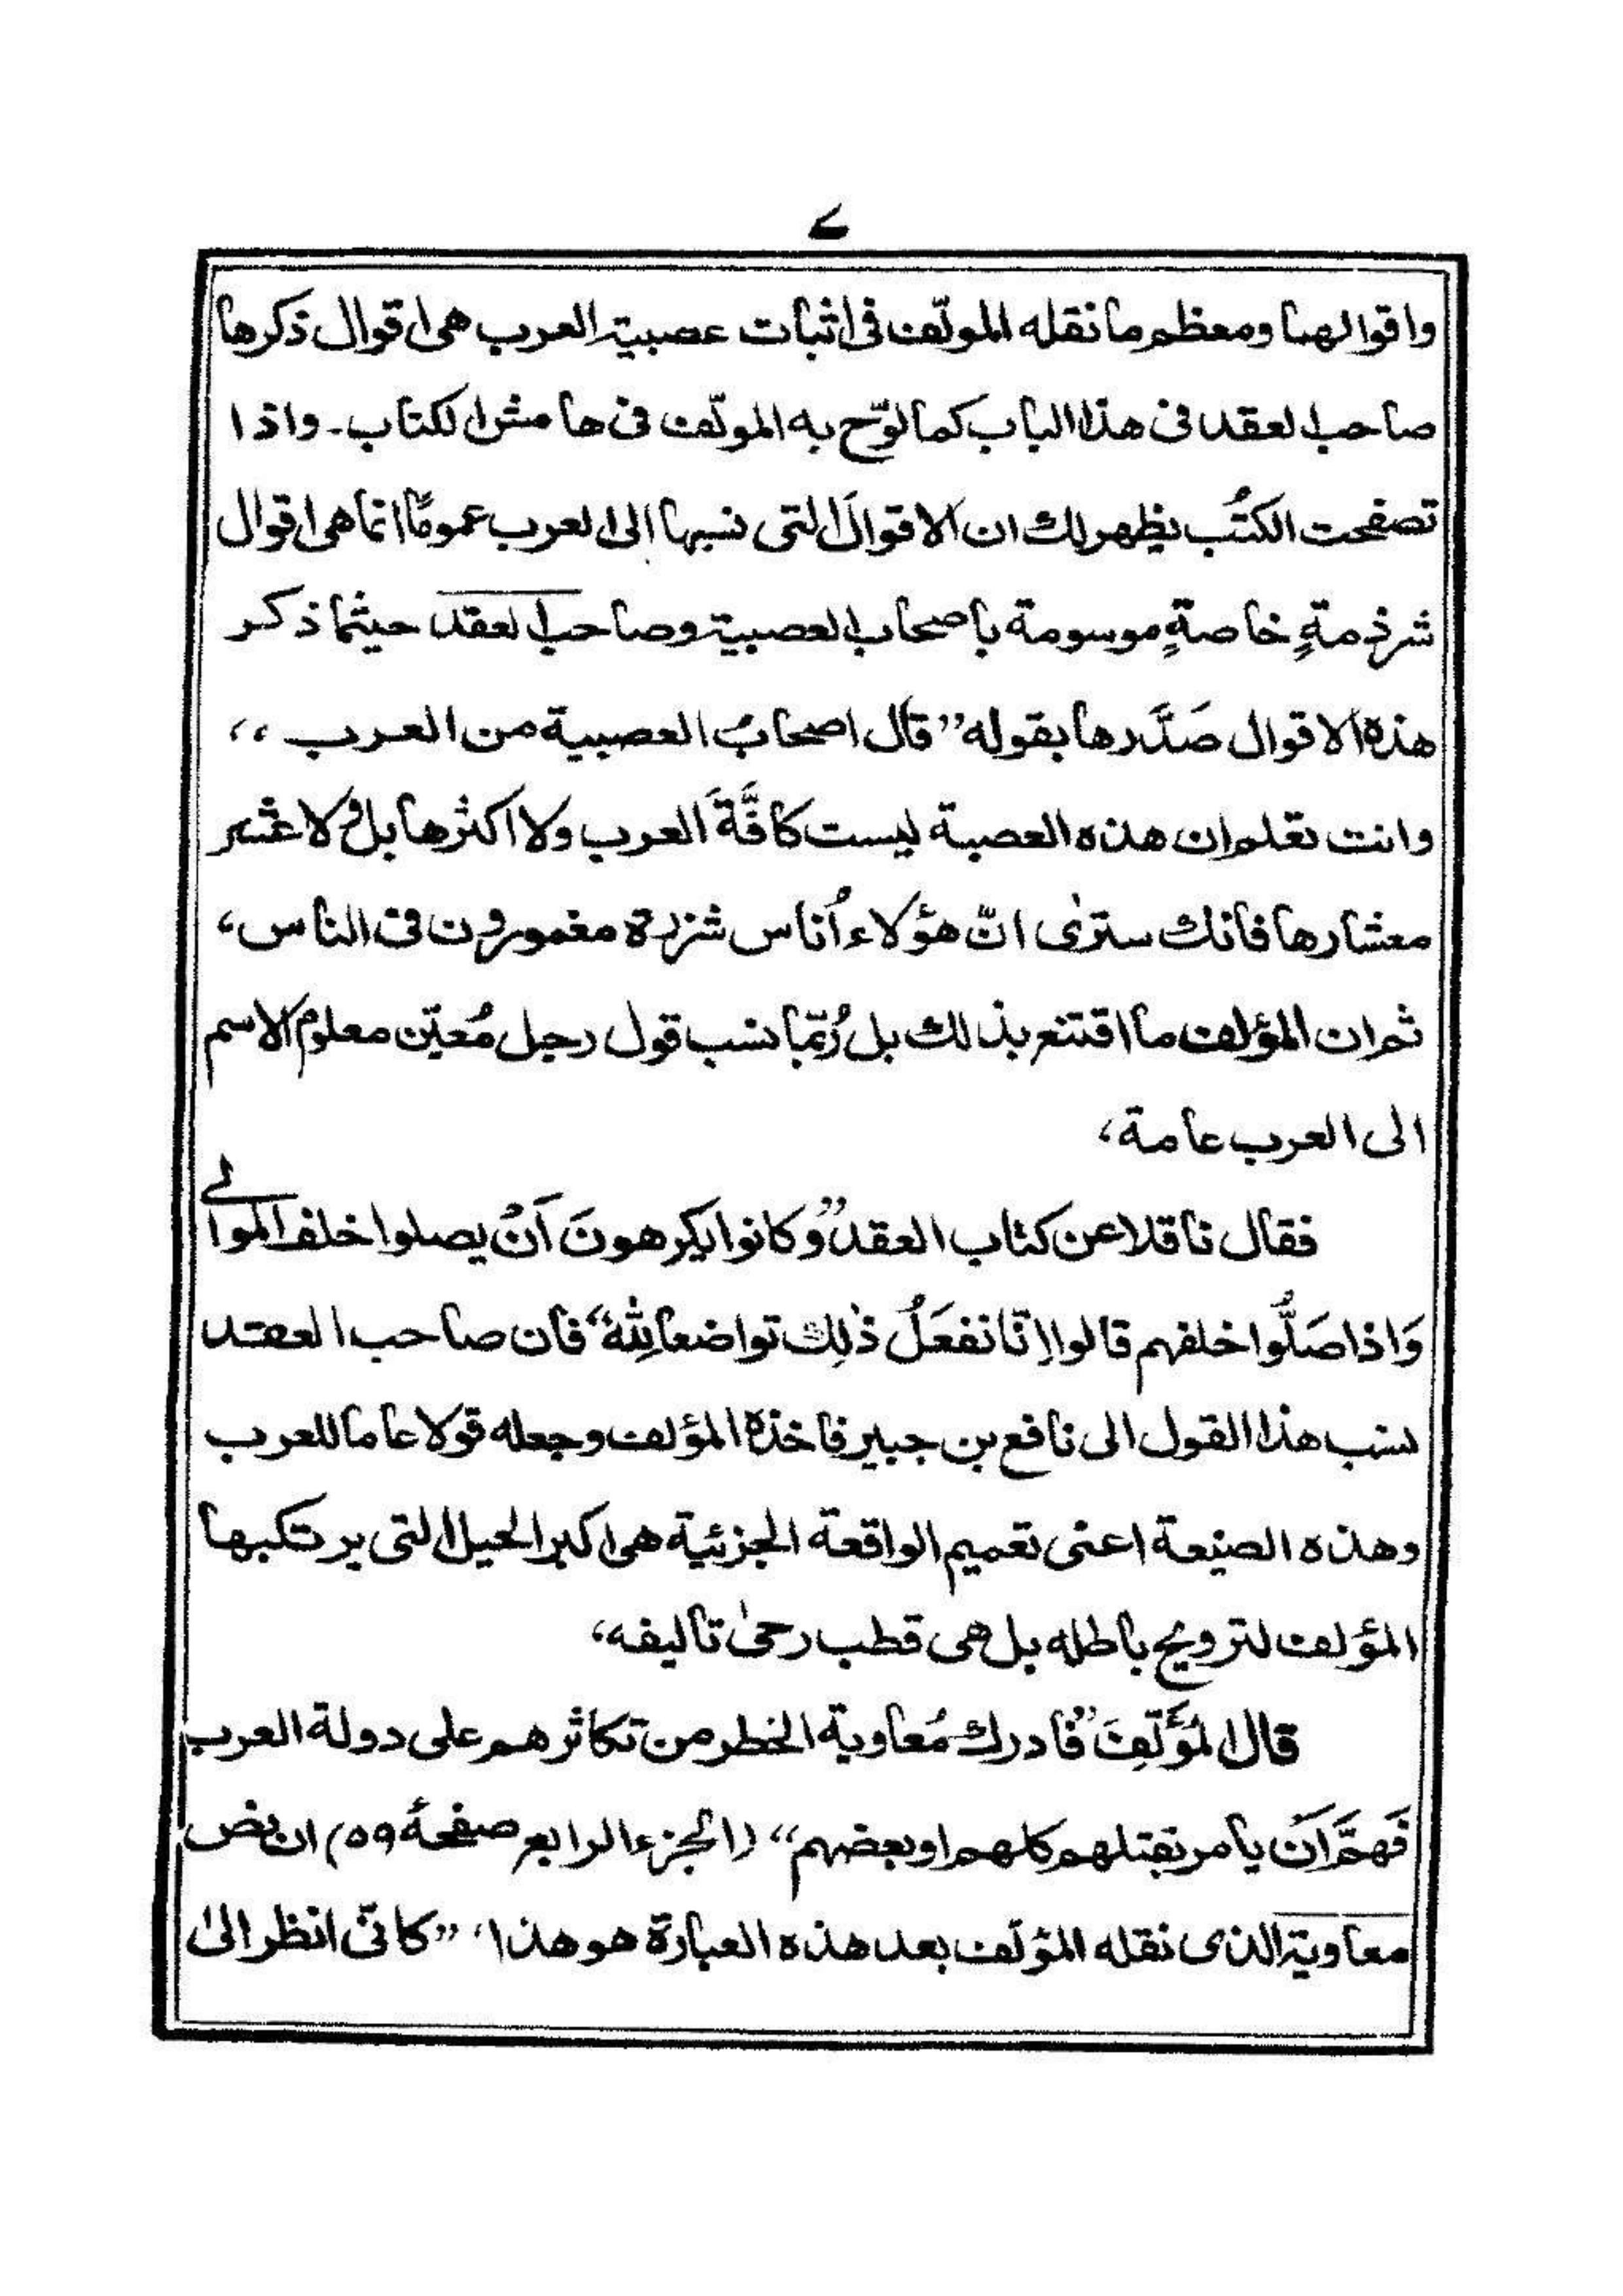 ۷
واقوالهما ومعظم ما نقله المولّف فى اثبات عصبية العرب هى اقوال ذكرها
صاحب العقد فى هذا الباب كما لوّح به المولّف فى هامش الكتاب۔ واذا
تصفحت الكتُب يظهر لك ان الاقوالَ التى نسبها الى العرب عمومًا انما هى اقوال
شرذمةٍ خاصةٍ موسومة باصحاب العصبية وصاحب العقد حيثما ذكر
هذه الاقوال صَدَّرها بقوله ”قال اصحابُ العصبية من العرب ،،
وانت تعلم ان هذه العصبة ليست كافَّةَ العرب ولا اكثرها بل ولا عُشر
معشارها فانك سترٰى انّ هؤلاء اُناس شزرة مغمورون فى الناس،
ثم ان المؤلف ما اقتنع بذالك بل رُبّما نسب قول رجل مُعيّن معلوم الاسم
الى العرب عامة،
فقال ناقلا عن كتاب العقد ”وكانوا يكرهونَ اَنْ يصلوا خلف الموالى
وَاذا صَلُّوا خلفهم قالوا اِنّا نفعَلُ ذٰلِك تواضعا لِلّٰه“ فان صاحب العقد
نسب هذا القول الى نافع بن جبير فاخذه المؤلف وجعله قولا عاما للعرب
وهذه الصنيعة اعنى تعميم الواقعة الجزئية هى اكبر الحيل التى يرتكبها
المؤلف لترويج باطله بل هى قطب رحىٰ تاليفه،
قال المُؤَلّفِ ”فادرك مُعاوية الخطر من تكاثرهم على دولة العرب
فَهَمَّ اَنْ يامر بقتلهم كلهم او بعضهم“ (الجزء الرابع صفحهٔ ۵۹) ان نص
معاوية الذى نقله المؤلّف بعد هذه العبارة هو هذا، ”كانّى انظر الىٰ